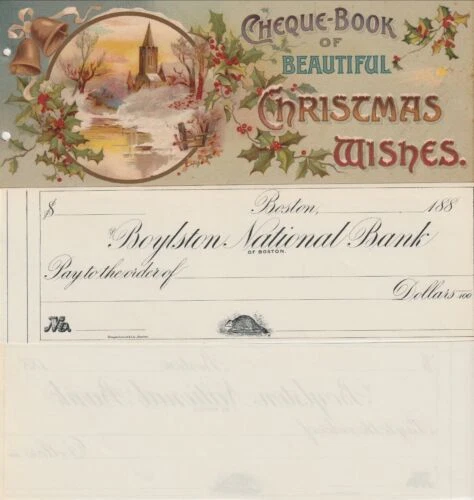 CHEQUE-BOOK
OF
BEAUTIFUL
CHRISTMAS
WISHES.
$ Boston, 188
Boylston National Bank
OF BOSTON.
Pay to the order of
Dollars
No.